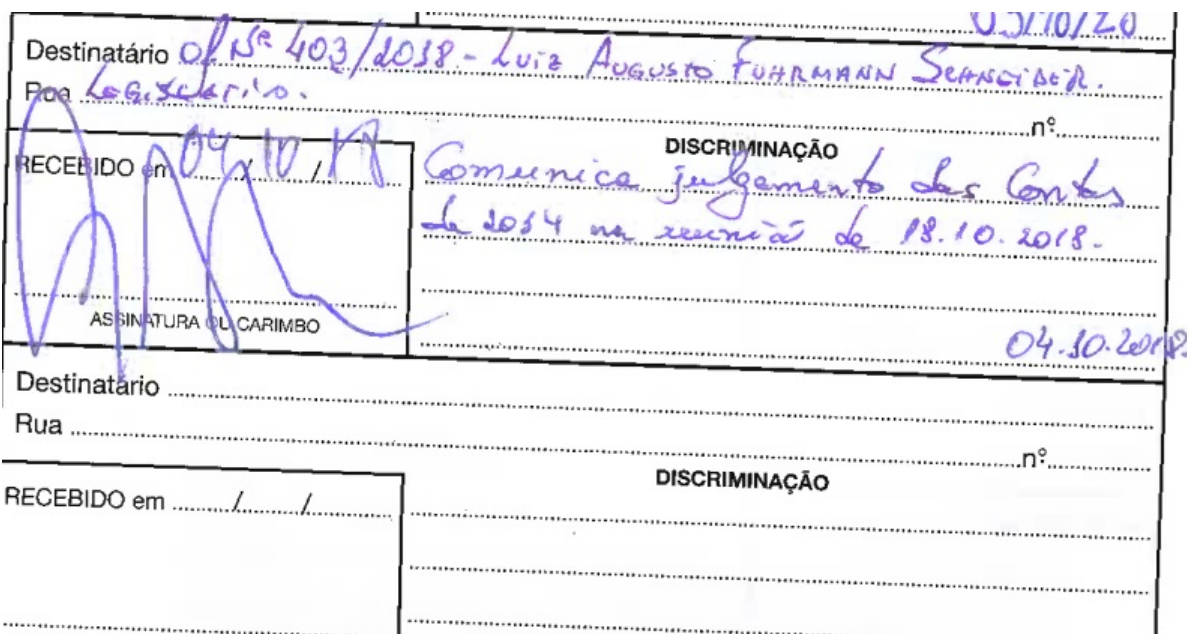 03/10/20
Destinatário Of Nº 403/2018 - Luiz Augusto Fuhrmann Schneider.
Rua Legislativo.
nº
RECEBIDO em 04/10/18
DISCRIMINAÇÃO
Comunica julgamento das Contas
de 2014 na reunião de 18.10.2018.
04.10.2018.
ASSINATURA OU CARIMBO
Destinatário
Rua
nº
RECEBIDO em / /
DISCRIMINAÇÃO